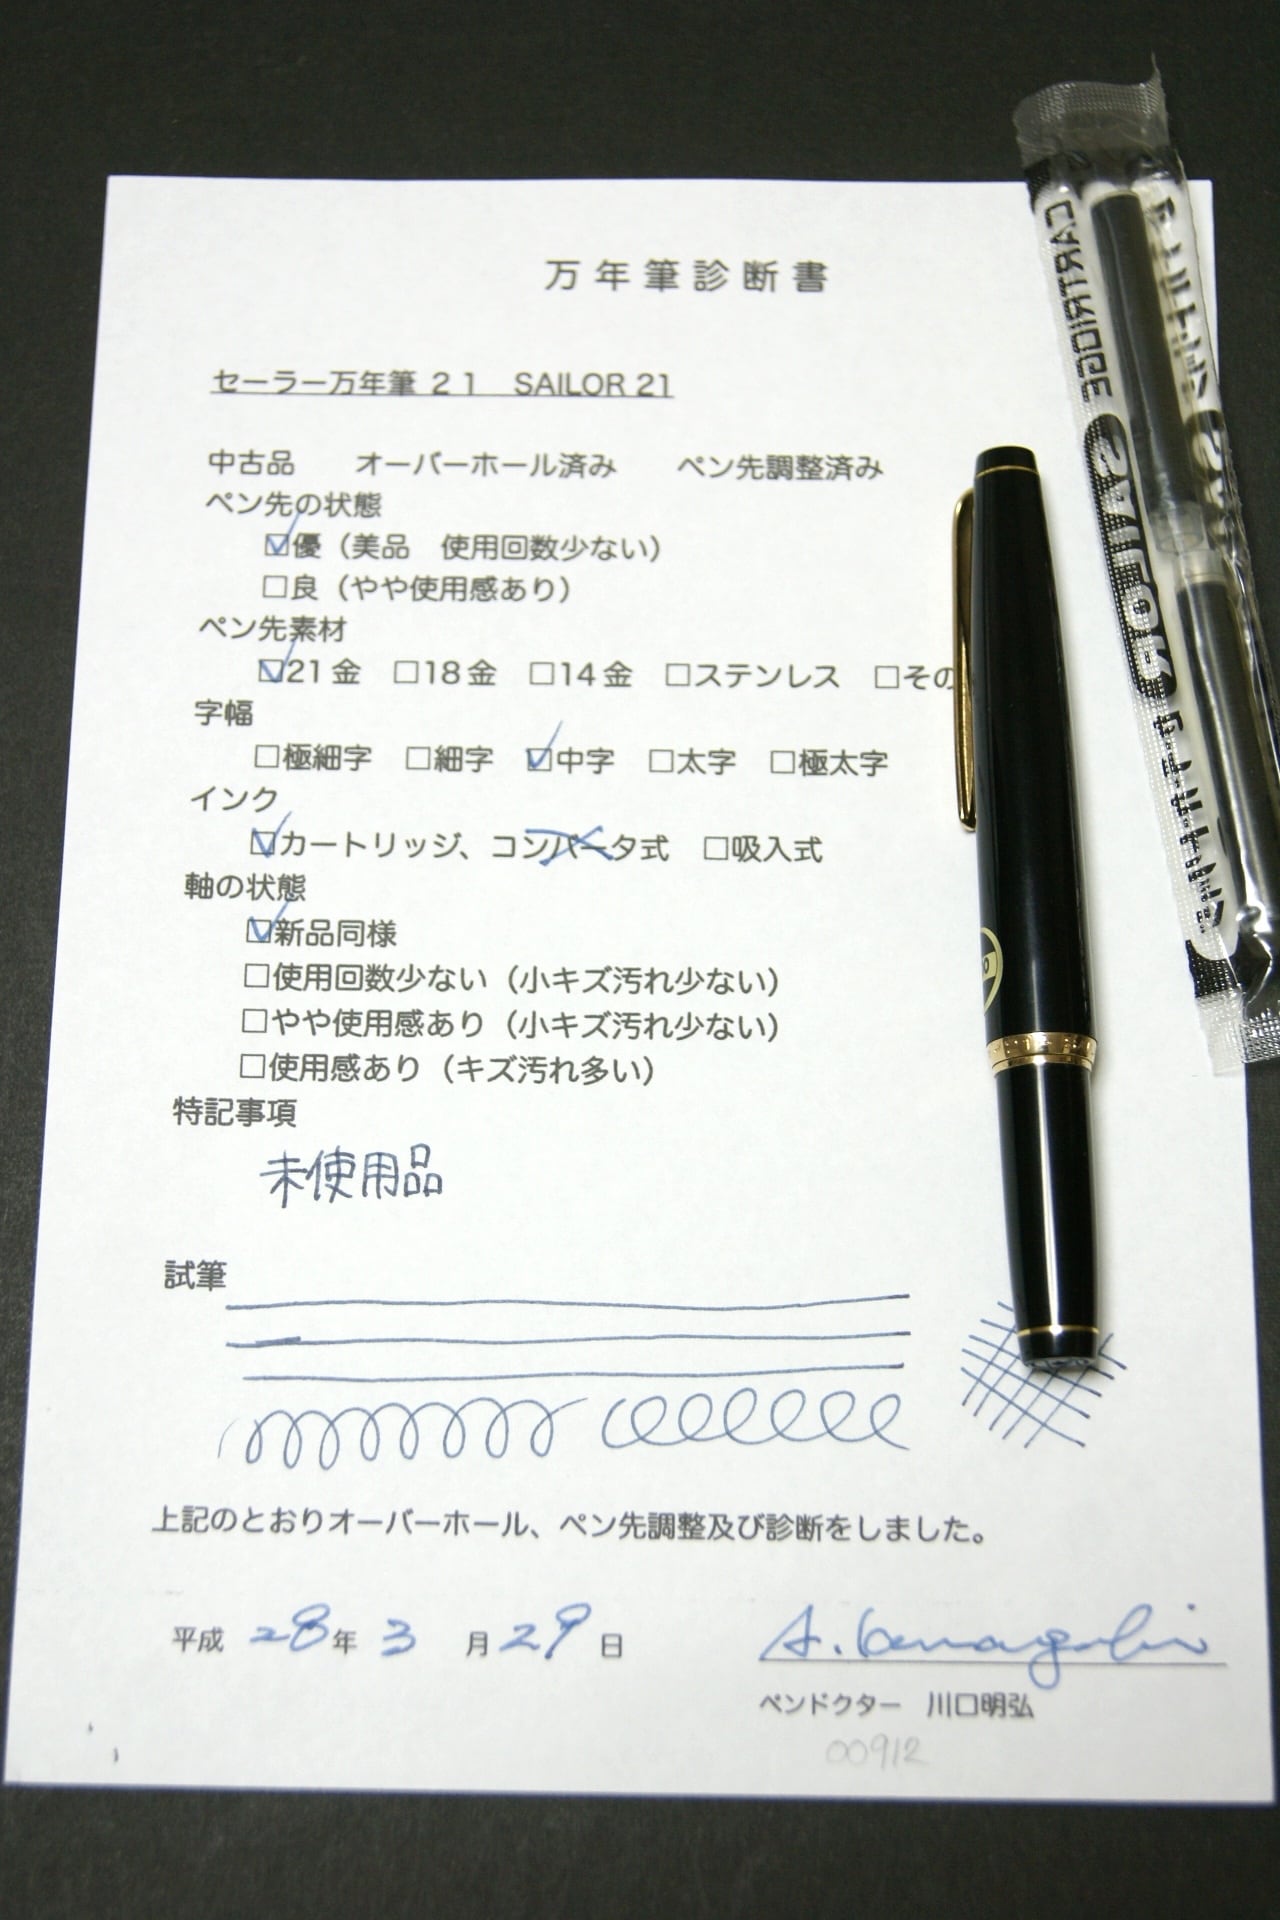 万年筆診断書
セーラー万年筆 21 SAILOR 21
中古品 オーバーホール済み ペン先調整済み
ペン先の状態
☑優（美品 使用回数少ない）
□良（やや使用感あり）
ペン先素材
☑21金 □18金 □14金 □ステンレス □その
字幅
□極細字 □細字 ☑中字 □太字 □極太字
インク
☑カートリッジ、コンバータ式 □吸入式
軸の状態
☑新品同様
□使用回数少ない（小キズ汚れ少ない）
□やや使用感あり（小キズ汚れ少ない）
□使用感あり（キズ汚れ多い）
特記事項
未使用品
試筆
上記のとおりオーバーホール、ペン先調整及び診断をしました。
平成 28年 3 月 29 日
A. Kawaguchi
ペンドクター 川口明弘
00912
CARTRIDGE
SAILOR